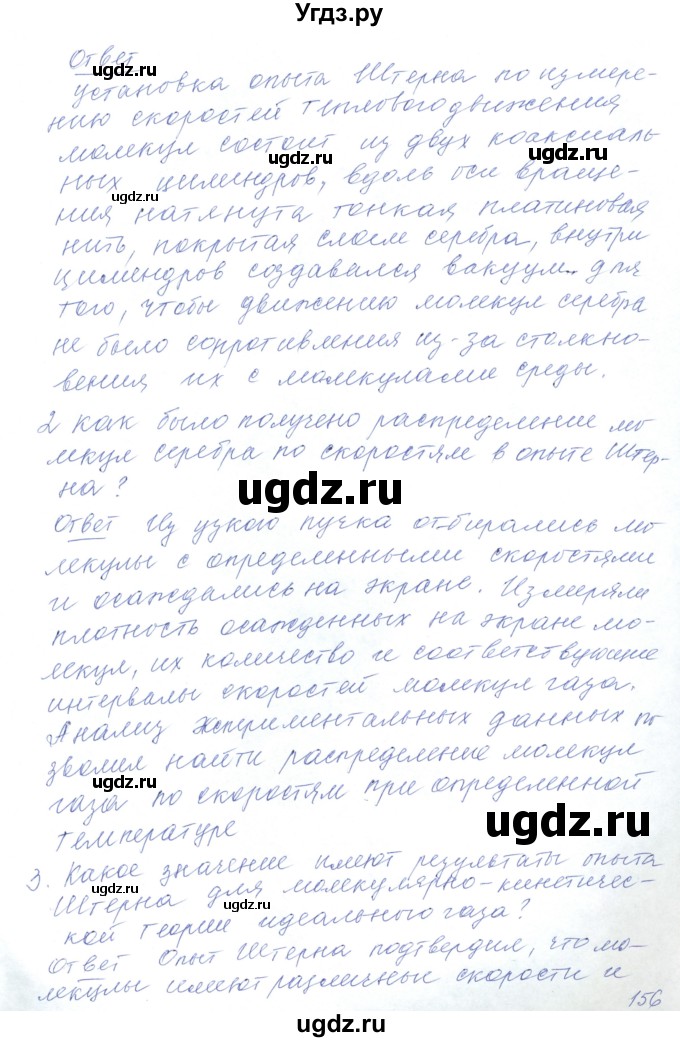 Угдз.ру
Ответ
ugdz.ru
установка опыта Штерна по измере-
нию скоростей теплового движения
молекул состоит из двух коаксиаль-
ugdz.ru
ных цилиндров, вдоль оси враще-
ния натянута тонкая платиновая
ugdz.ru
нить, покрытая слоем серебра, внутри
цилиндров создавался вакуум для
того, чтобы движению молекул серебра
не было сопротивления из-за столкно-
ugdz.ru
вения их с молекулами среды.
2 Как было получено распределение мо
лекул серебра по скоростям в опыте Штер-
на?
ugdz.ru
Ответ Из узкого пучка отбирались мо
лекулы с определенными скоростями
и осаждались на экране. Измеряли
ugdz.ru
плотность осажденных на экране мо-
лекул, их количество и соответствующие
интервалы скоростей молекул газа.
Анализ экспериментальных данных по
зволил найти распределение молекул
ugdz.ru
газа по скоростям при определенной
ugdz.ru
температуре
3. Какое значение имеют результаты опыта
ugdz.ru
Штерна для молекулярно-кинетичес-
ugdz.ru
кой теории идеального газа?
Ответ Опыт Штерна подтвердил, что мо-
ugdz.ru
лекулы имеют различные скорости и
156
ugdz.ru